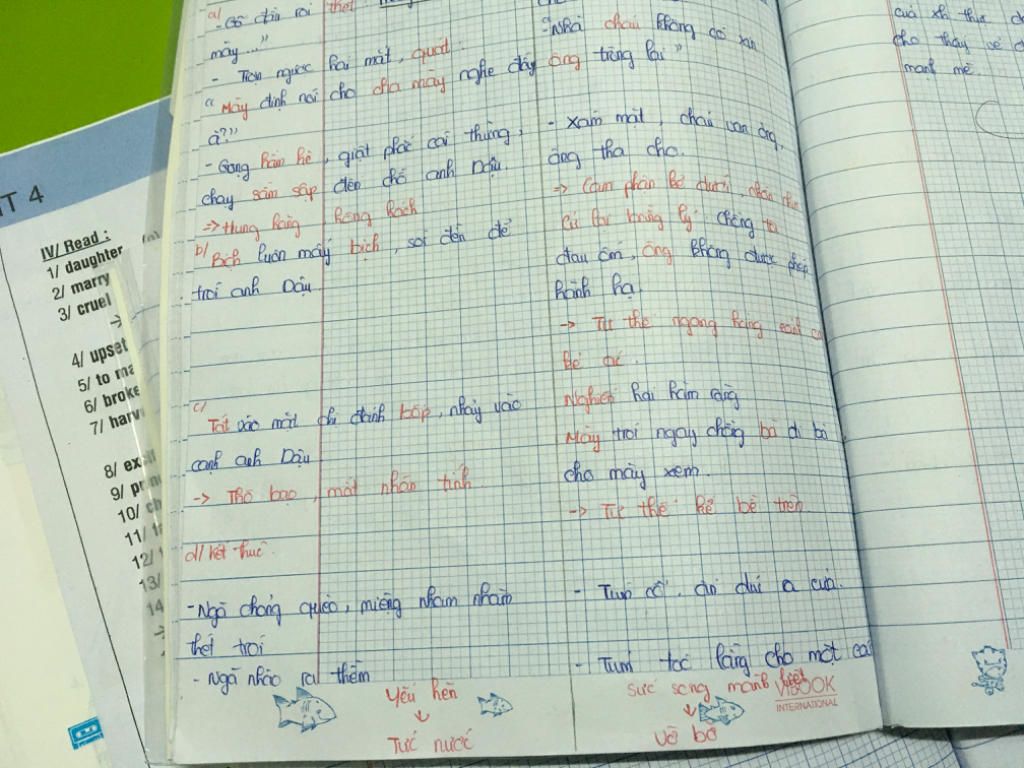 a/
- Cố dân roi thét
mày..."
- Trợn ngược hai mắt, quát
"Mày định nói cho cha mày nghe đấy
à?"
- Giọng hầm hè, giật phắt cái thừng,
chạy sầm sập đến chỗ anh Dậu.
=> Hung hăng hống hách
b/ Bịch luôn mấy bịch, sai đến để
trói anh Dậu
c/
Tát vào mặt chị đánh bốp, nhảy vào
cạnh anh Dậu
-> Thô bạo, mất nhân tính
d/ kết thúc
- Ngã chỏng quèo, miệng nham nhảm
thét trói
- Ngã nhào ra thềm
Yếu hèn
↓
Tức nước
- Nhà cháu không có
ông trông lại"
- Xám mặt, cháu van ông,
ông tha cho.
=> Cam phận bề dưới,
Cự lại bằng lý chồng tôi
đau ốm, ông không được phép
hành hạ.
-> Tư thế ngang hàng
kẻ ác.
Nghiến hai hàm răng
Mày trói ngay chồng bà đi bà
cho mày xem.
-> Tư thế kẻ bề trên
- Túm cổ, ấn dúi ra cửa.
- Túm tóc lẳng cho một cái
Sức sống mãnh liệt
↓
Vỡ bờ
VIBOOK
INTERNATIONAL
của chị
cho thấy vẻ
mạnh mẽ.
IT 4
IV/ Read :
1/ daughter
2/ marry
3/ cruel
→
4/ upset
5/ to
6/ broke
7/ harv
8/
9/
10/ ch
11/
12/
13/
14